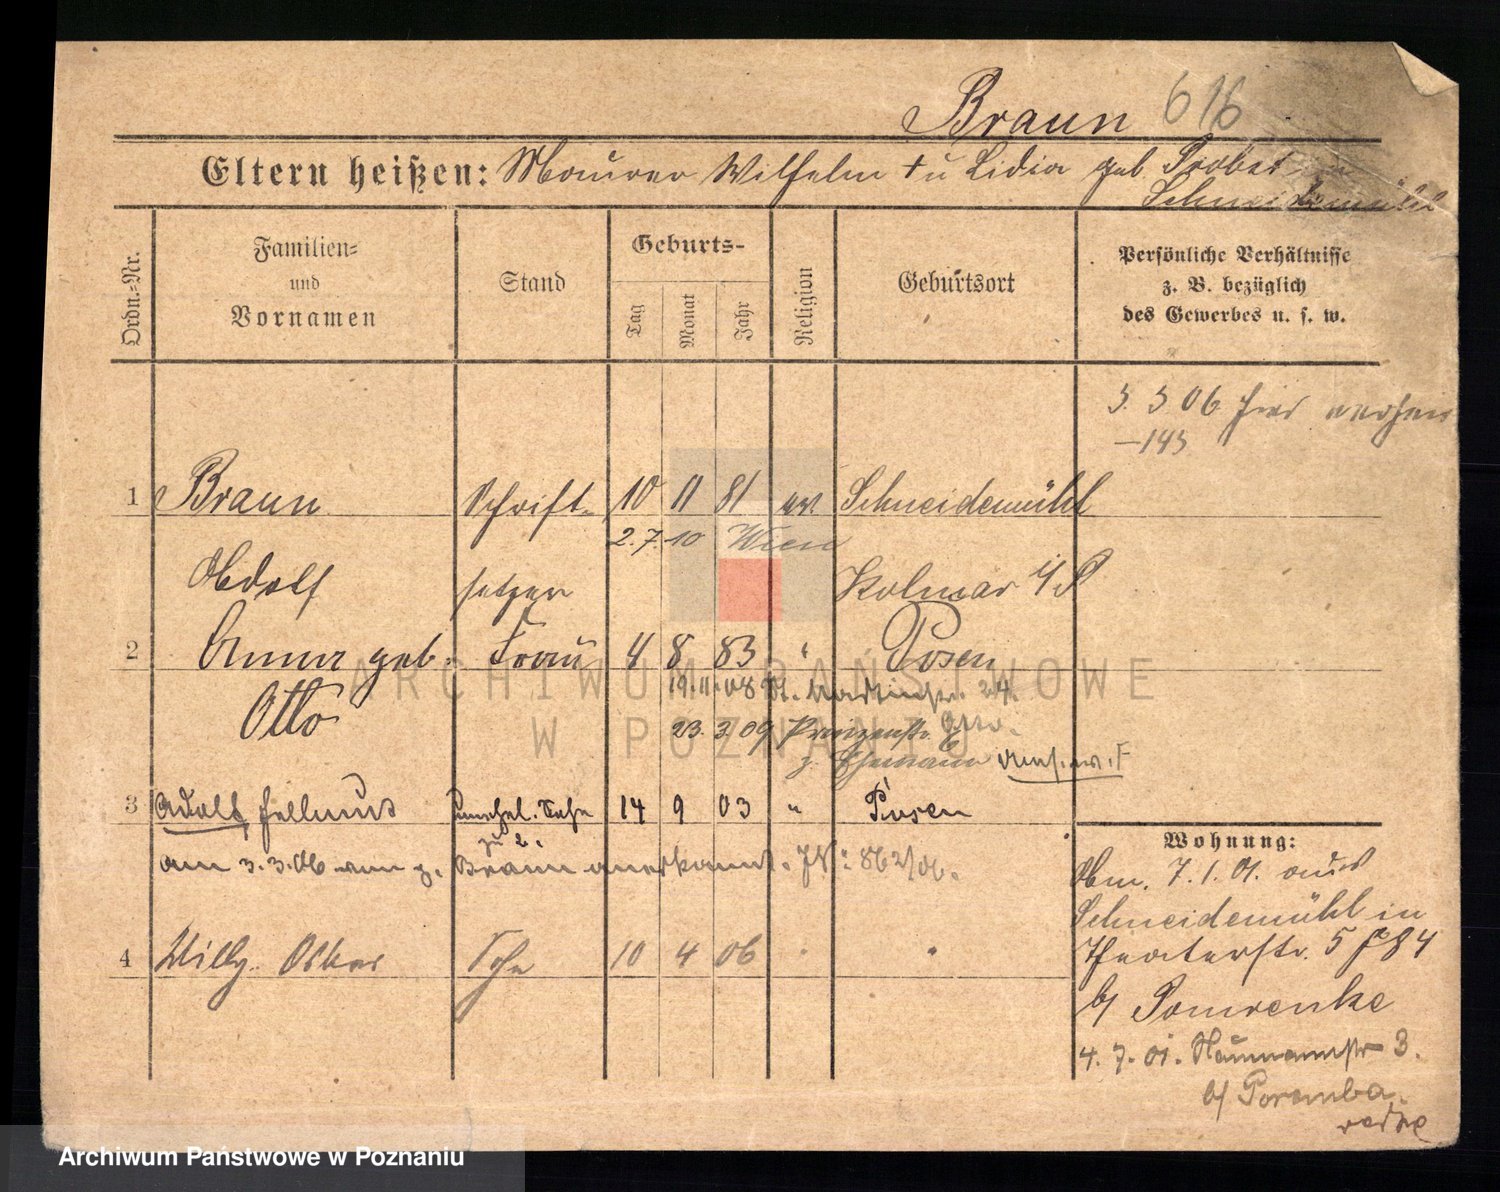 Braun 616
Eltern heißen: Maurer Wilhelm † u Lidia geb. Probst
Schneidemühl
Ordn.-Nr.
Familien-
und
Vornamen
Stand
Geburts-
Tag
Monat
Jahr
Religion
Geburtsort
Persönliche Verhältnisse
z. B. bezüglich
des Gewerbes u. s. w.
3. 3 06 hier
—143
1 Braun Schrift- 10 11 81 ev. Schneidemühl
2.7.10 Wien
Adolf setzer Kolmar i/P
2 Anna geb. Frau 4 8 83 " Posen
Otto 19.11.08 St. Martinstr. 24.
23.3.09 Prinzenstr.
z. Ehemann
3 Adolf, Hellmut unehel. Sohn 14 9 03 " Posen
zu 2.
am 3.3.06 von z. Braun anerkannt. JN: 862/06.
4 Willy Oskar Sohn 10 4 06 " "
Wohnung:
Abm. 7.1.01. aus
Schneidemühl in
Theaterstr. 5
b/ Pomrenke
4.7.01. Naumannstr 3.
b/ Poremba.
ARCHIWUM PAŃSTWOWE
W POZNANIU
Archiwum Państwowe w Poznaniu